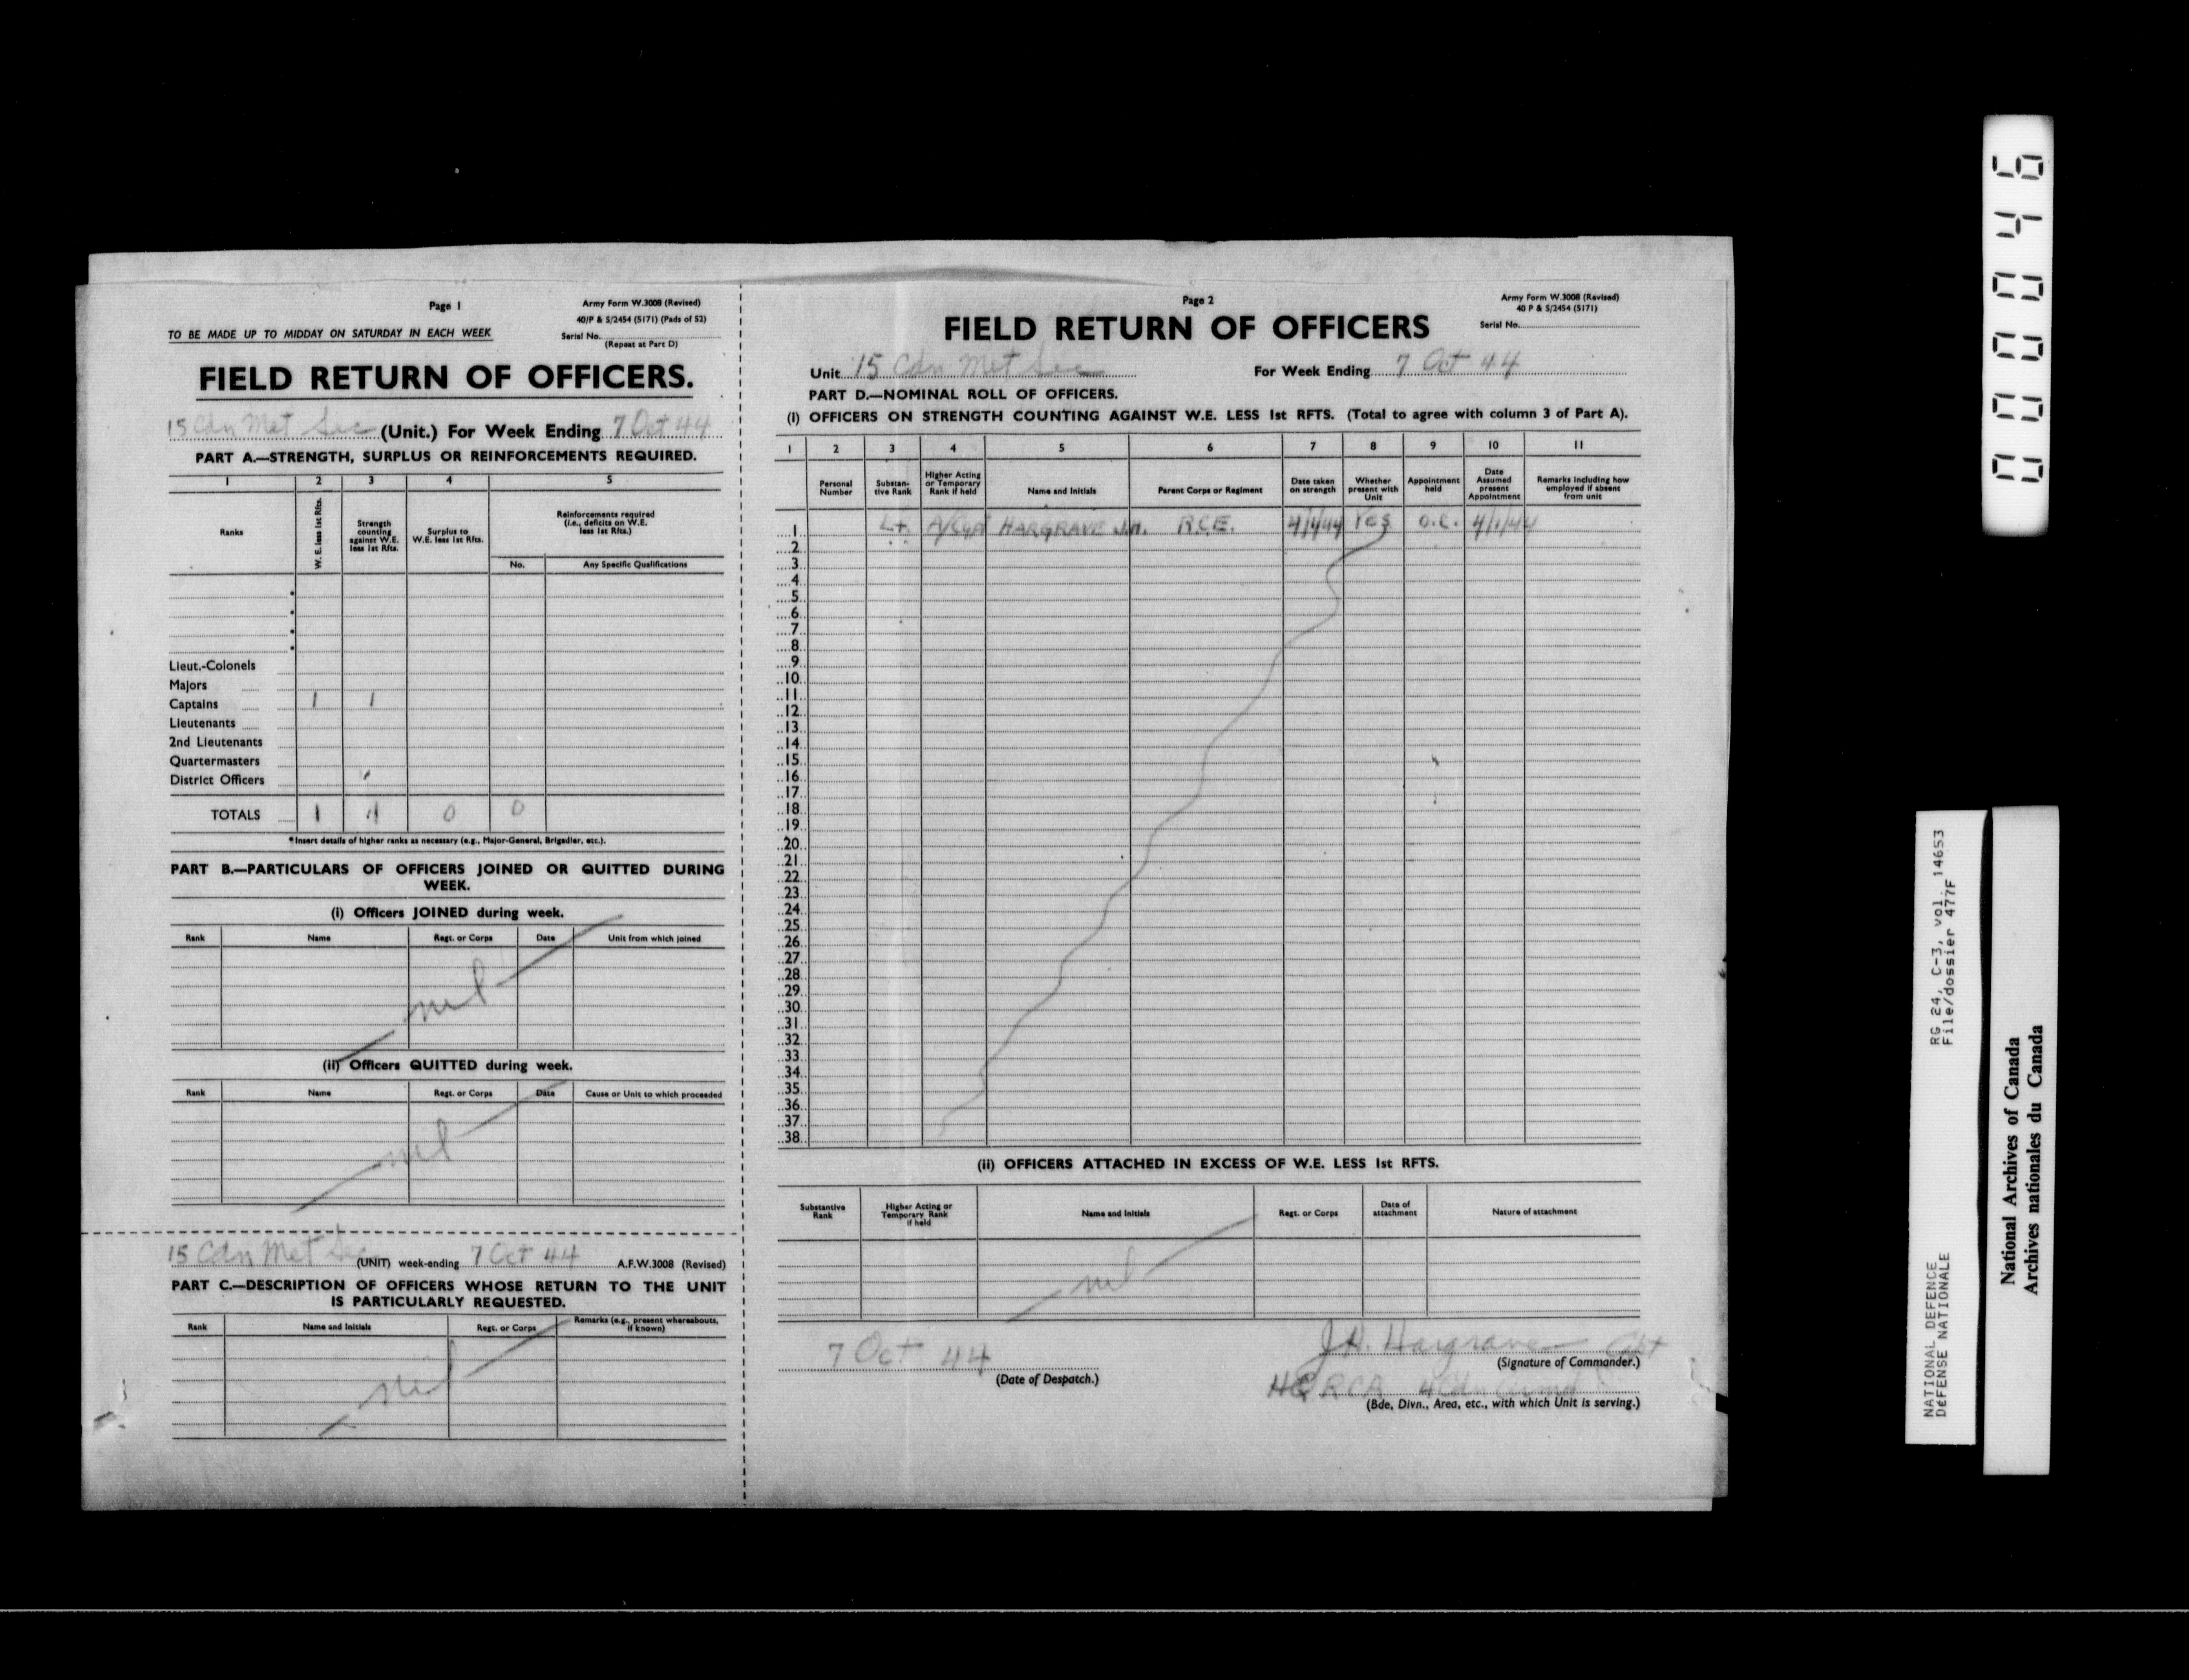 Page 1
Army Form W.3008 (Revised)
40/P & S/2454 (5171) (Pads of 52)
TO BE MADE UP TO MIDDAY ON SATURDAY IN EACH WEEK
Serial No.
(Repeat at Part D)
FIELD RETURN OF OFFICERS.
15 Cdn Met Sec (Unit.) For Week Ending 7 Oct 44
PART A.—STRENGTH, SURPLUS OR REINFORCEMENTS REQUIRED.
1 2 3 4 5
Ranks
W. E. less 1st Rfts.
Strength counting against W.E. less 1st Rfts.
Surplus to W.E. less 1st Rfts.
Reinforcements required (i.e., deficits on W.E. less 1st Rfts.)
No. Any Specific Qualifications
Lieut.-Colonels
Majors
Captains 1 1
Lieutenants
2nd Lieutenants
Quartermasters
District Officers
TOTALS 1 1 0 0
*Insert details of higher ranks as necessary (e.g., Major-General, Brigadier, etc.).
PART B.—PARTICULARS OF OFFICERS JOINED OR QUITTED DURING
WEEK.
(i) Officers JOINED during week.
Rank Name Regt. or Corps Date Unit from which joined
nil
(ii) Officers QUITTED during week.
Rank Name Regt. or Corps Date Cause or Unit to which proceeded
nil
15 Cdn Met Sec (UNIT) week-ending 7 Oct 44 A.F.W.3008 (Revised)
PART C.—DESCRIPTION OF OFFICERS WHOSE RETURN TO THE UNIT
IS PARTICULARLY REQUESTED.
Rank Name and Initials Regt. or Corps Remarks (e.g., present whereabouts, if known)
nil
Page 2
Army Form W.3008 (Revised)
40 P & S/2454 (5171)
Serial No.
FIELD RETURN OF OFFICERS
Unit 15 Cdn Met Sec For Week Ending 7 Oct 44
PART D.—NOMINAL ROLL OF OFFICERS.
(i) OFFICERS ON STRENGTH COUNTING AGAINST W.E. LESS 1st RFTS. (Total to agree with column 3 of Part A).
1 2 3 4 5 6 7 8 9 10 11
Personal Number
Substan-tive Rank
Higher Acting or Temporary Rank if held
Name and Initials
Parent Corps or Regiment
Date taken on strength
Whether present with Unit
Appointment held
Date Assumed present Appointment
Remarks including how employed if absent from unit
1 Lt. A/Capt HARGRAVE J.H. R.C.E. 4/1/44 Yes O.C. 4/1/44
2
3
4
5
6
7
8
9
10
11
12
13
14
15
16
17
18
19
20
21
22
23
24
25
26
27
28
29
30
31
32
33
34
35
36
37
38
(ii) OFFICERS ATTACHED IN EXCESS OF W.E. LESS 1st RFTS.
Substantive Rank
Higher Acting or Temporary Rank if held
Name and Initials
Regt. or Corps
Date of attachment
Nature of attachment
nil
7 Oct 44
(Date of Despatch.)
J.H. Hargrave Capt
(Signature of Commander.)
HQ RCA 4 Cdn Armd
(Bde, Divn., Area, etc., with which Unit is serving.)
000046
RG 24, C-3, vol. 14653
File/dossier 477F
NATIONAL DEFENCE
DEFENSE NATIONALE
National Archives of Canada
Archives nationales du Canada